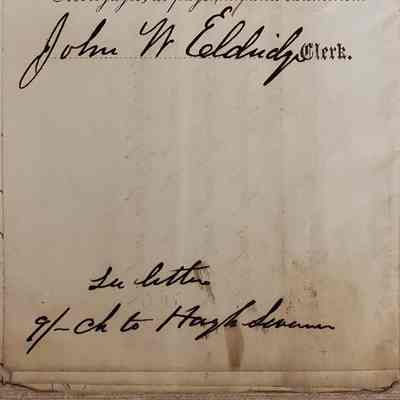 John W Eldridge Clerk.
See letter
9/- Ch to Hugh